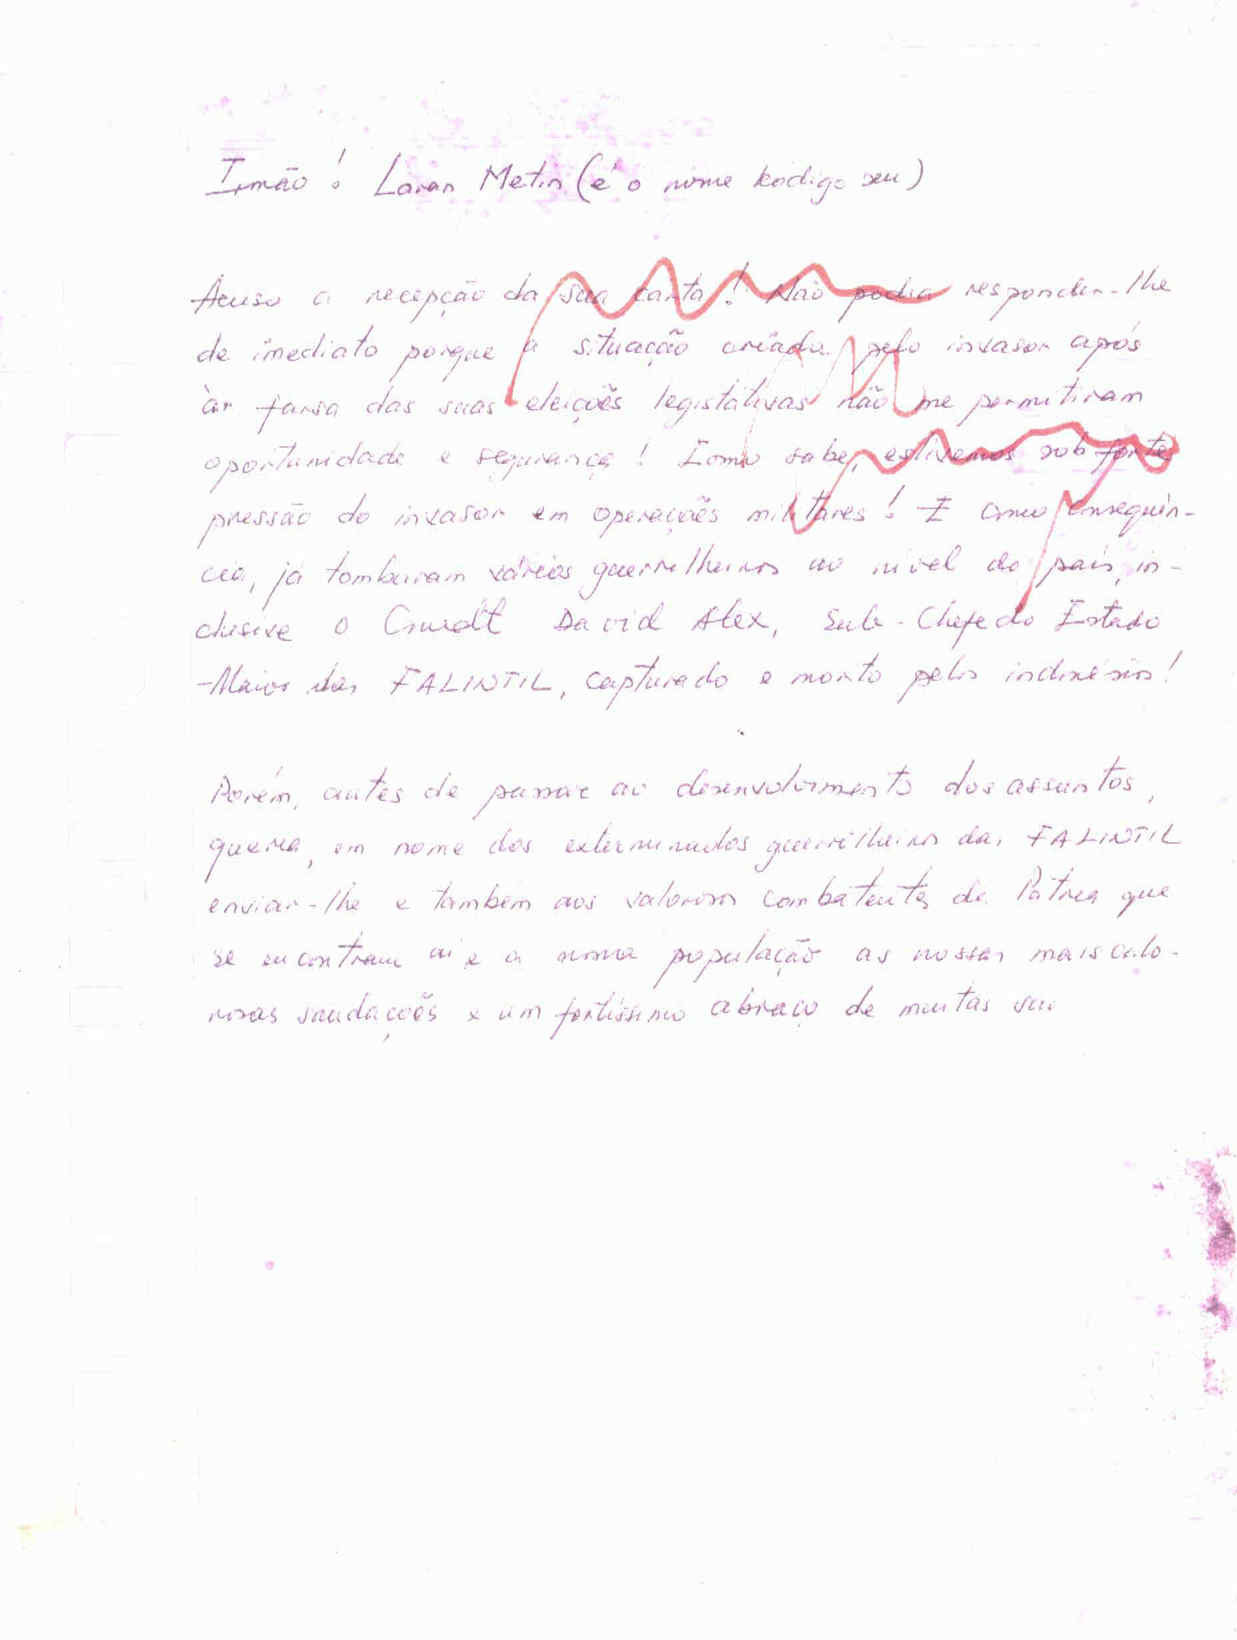 Irmão! Laran Metin (é o nome kódigo seu)
Acuso a recepção da sua carta! Não podia responder-lhe
de imediato porque a situação criada pelo invasor após
àr farsa das suas eleições legistátivas não me permitiram
oportunidade e segurança! Como sabe, estivemos sob fortes
pressão do invasor em operações militares! E como consequên-
cia, já tombaram vários guerrilheiros ao nível do país, in-
clusive o Cmdt David Alex, Sub-Chefe do Estado
-Maior das FALINTIL, capturado e morto pelos indonésios!
Porém, antes de passar ao desenvolvimento dos assuntos,
queria, em nome dos exterminados guerrilheiros das FALINTIL
enviar-lhe e também aos valorosos combatentes da Pátria que
se encontram aí e a nossa população as nossas mais calo-
rosas saudações e um fortíssimo abraço de muitas